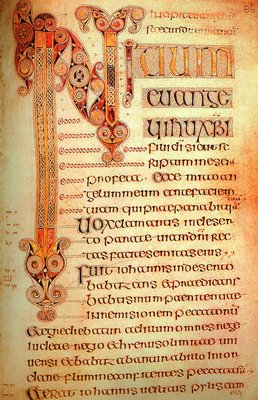 secundum marcum
INITIUM
EUANGE
LII IHU XPI
fili di sicut sc
ribtum in esei
a profeta Ecce mitto an
gelum meum ante faciem
tuam qui praeparabit uia
Uox clamantis in deser
to parate uiam dni rec
tas facite semitas eius
Fuit iohannis in deserto
babtizans et praedicans
babtismum paenitentiae
in remisionem peccatorum
Et egrediebatur ad illum omnis
iudeae regio et hierusolimitae uni
uersi et babtizabantur ab illo in ior
dane flumine confitentes peccata sua
Et erat iohannis uestitus pylis cam
eli